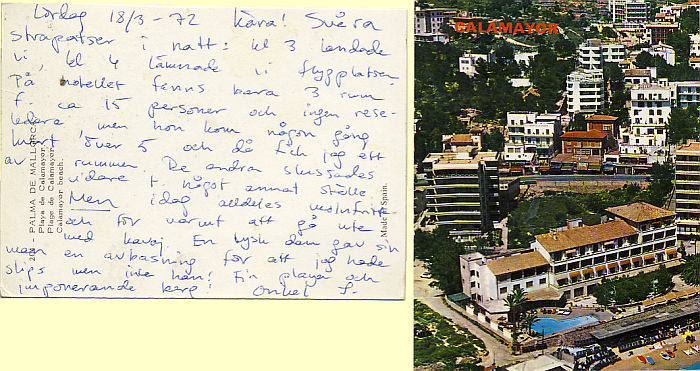 Lördag 18/3 - 72 Kära! Svåra
strapatser i natt: kl 3 landade
vi, kl 4 lämnade vi flygplatsen
På hotellet fanns bara 3 rum
f. ca 15 personer och ingen rese-
ledare, men hon kom någon gång
kvart över 5 och då fick jag ett
av rummen. De andra slussades
vidare t något annat ställe
Men idag alldeles molnfritt
och för varmt att gå ute
med kavaj. En tysk dam gav sin
man en avbasning för att jag hade
slips men inte han! Fin playa och
imponerande berg! Onkel f.
PALMA DE MALLORCA
Playa de Calamayor.
Plage de Calamayor.
Calamayor beach.
Made in Spain.
CALAMAYOR